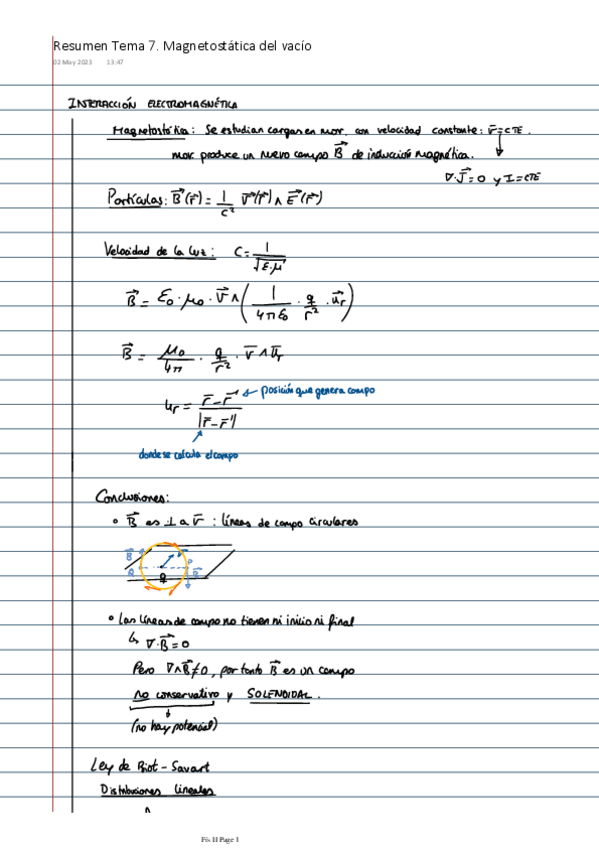 Resumen Tema 7. Magnetostática del vacío
02 May 2023 13:47
INTERACCIÓN ELECTROMAGNÉTICA
Magnetostática: Se estudian cargas en mov. con velocidad constante: v̄=CTE.
mov. produce un nuevo campo B⃗ de inducción magnética.
∇·J⃗=0 y I=CTE
Partículas: B⃗(r⃗) = 1/c² v⃗(r⃗) ∧ E⃗(r⃗)
Velocidad de la luz: C = 1/√(ε·μ)
B⃗ = ε₀·μ₀·v⃗ ∧ (1/4πε₀ · q/r² · u⃗r)
B⃗ = μ₀/4π · q/r² · v̄ ∧ ūr
ur = (r̄ - r̄')/|r̄ - r̄'| ← posición que genera campo
donde se calcula el campo
Conclusiones:
• B⃗ es ⊥ a v̄ : líneas de campo circulares
B⃗
q
• Las líneas de campo no tienen ni inicio ni final
↳ ∇·B⃗=0
Pero ∇∧B⃗≠0, por tanto B⃗ es un campo
no conservativo y SOLENOIDAL.
↓
(no hay potencial)
Ley de Biot-Savart
Distribuciones lineales
Fís II Page 1